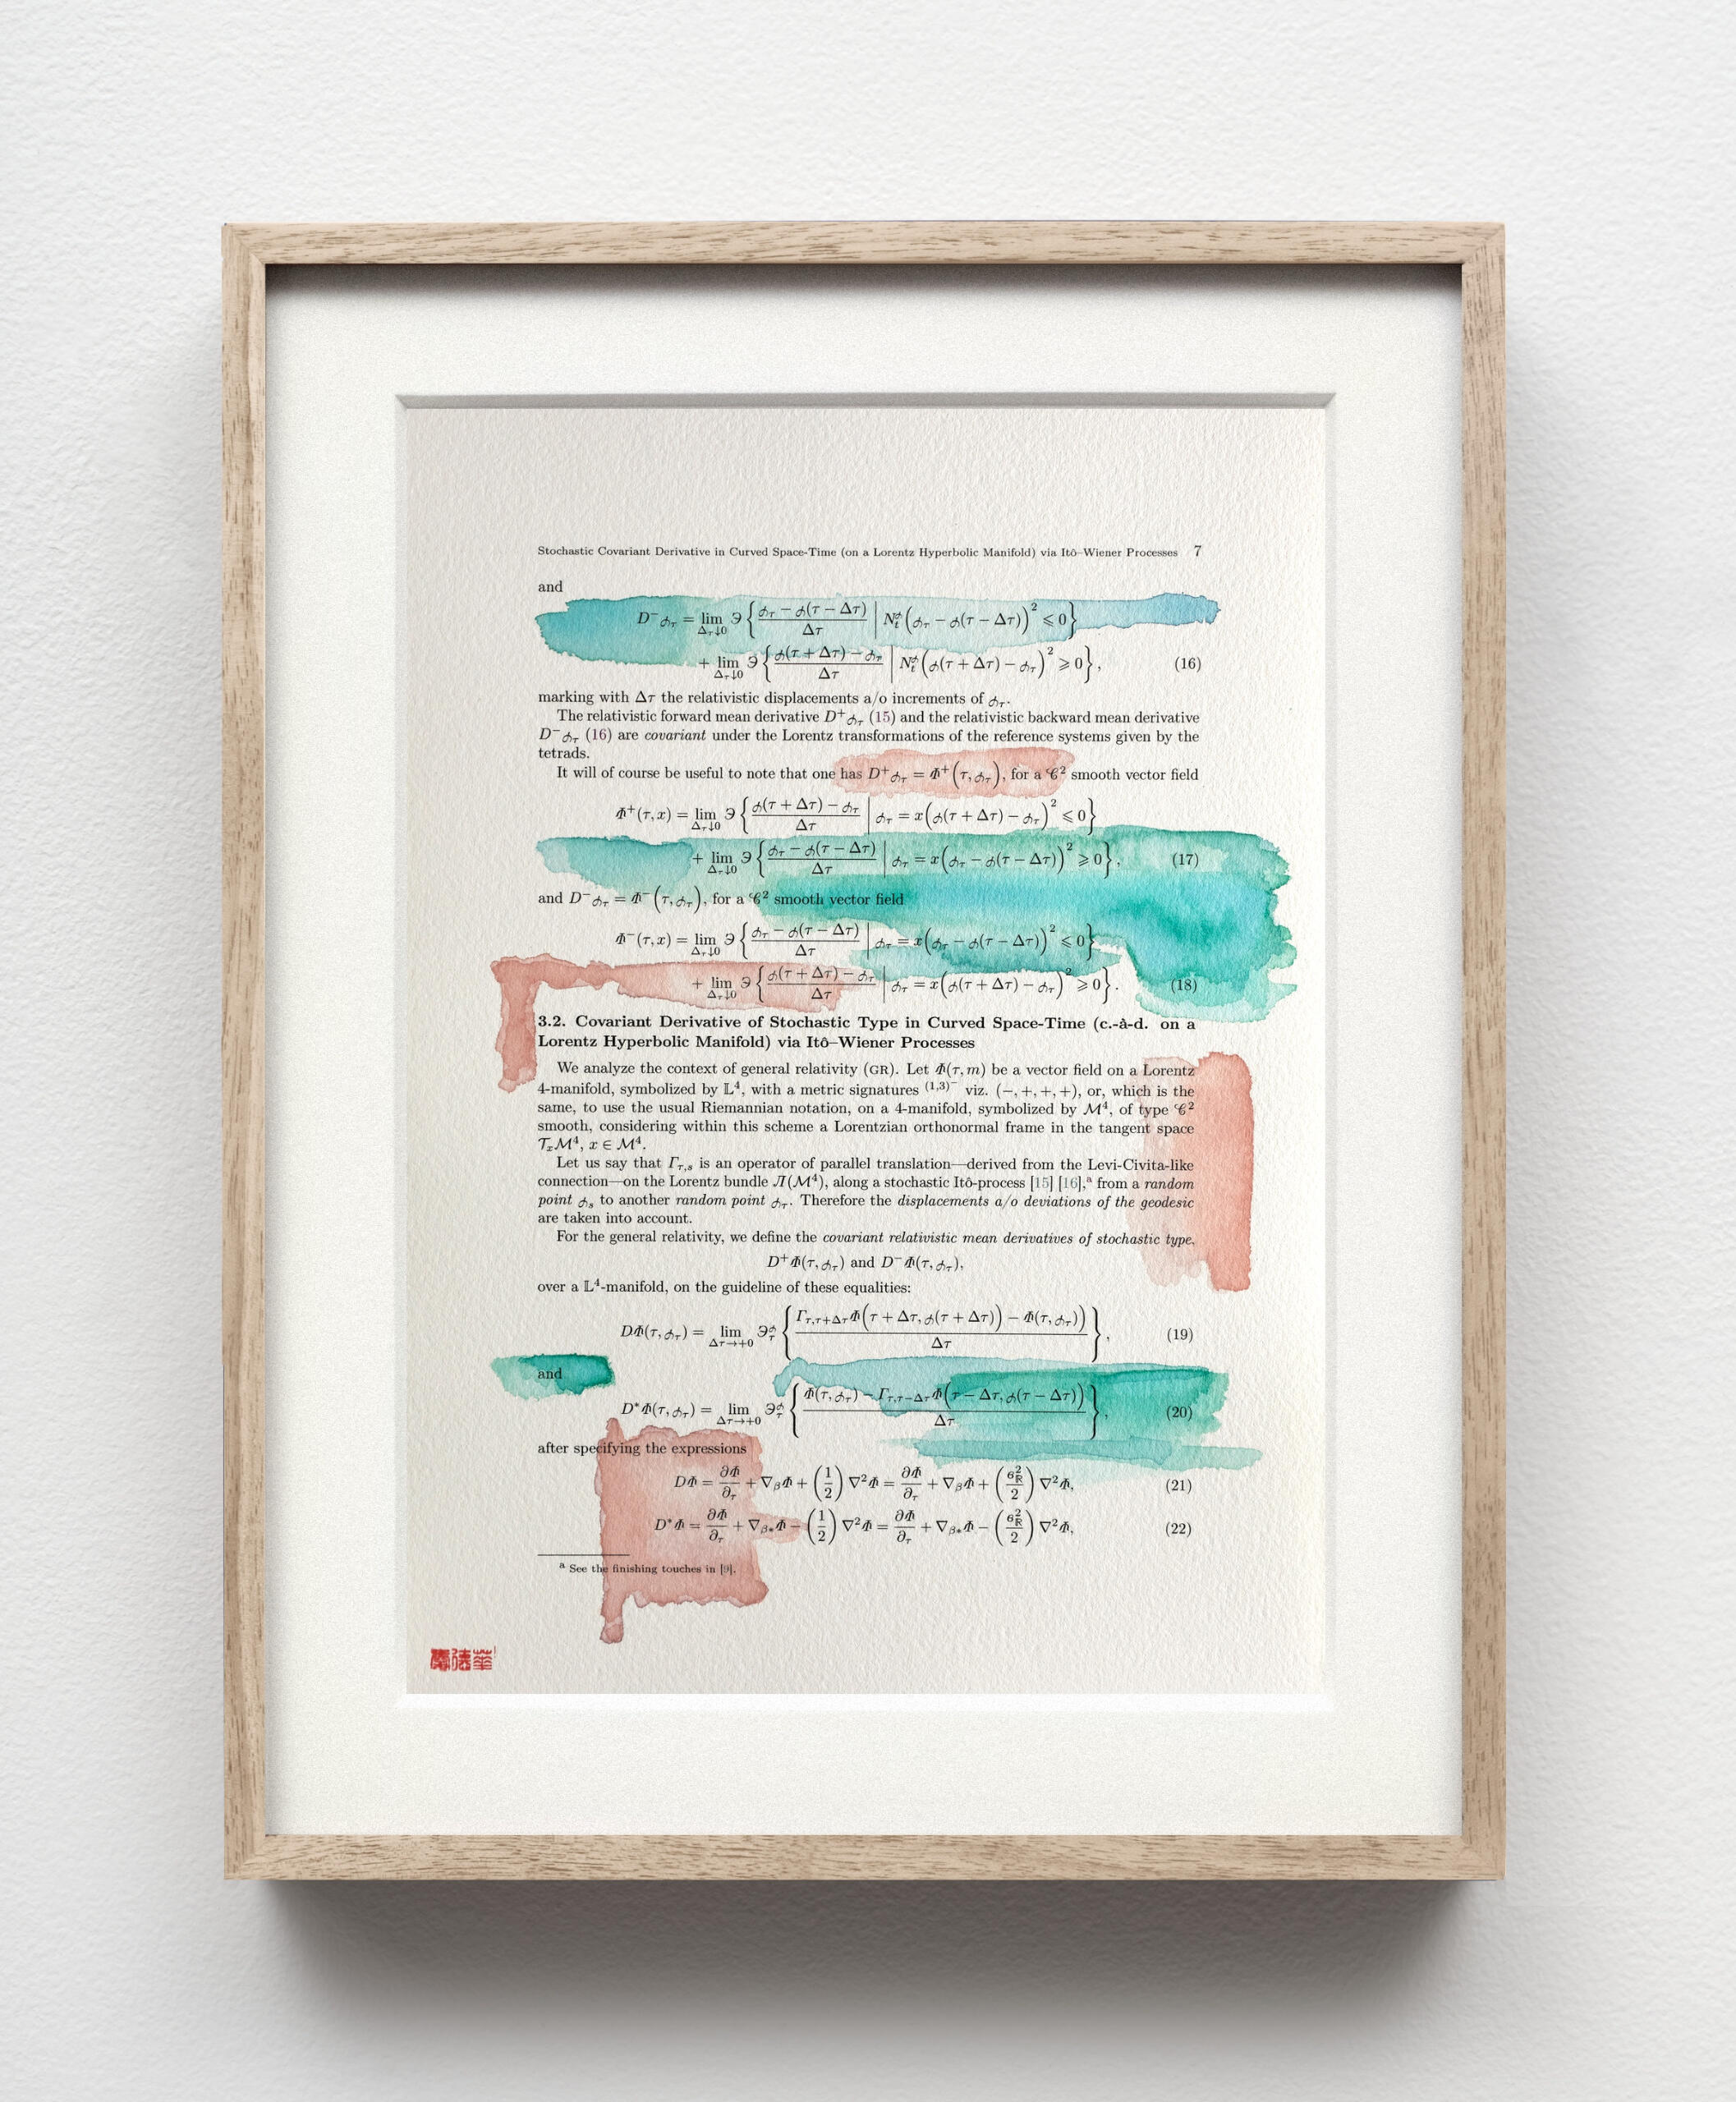 Stochastic Covariant Derivative in Curved Space-Time (on a Lorentz Hyperbolic Manifold) via Itô–Wiener Processes 7
and
D⁻𝜙_τ = lim_{Δτ↓0} Э { (𝜙_τ − 𝜙(τ − Δτ)) / Δτ | N_t^𝜙 (𝜙_τ − 𝜙(τ − Δτ))² ⩽ 0 }
+ lim_{Δτ↓0} Э { (𝜙(τ + Δτ) − 𝜙_τ) / Δτ | N_t^𝜙 (𝜙(τ + Δτ) − 𝜙_τ)² ⩾ 0 } , (16)
marking with Δτ the relativistic displacements a/o increments of 𝜙_τ.
The relativistic forward mean derivative D⁺𝜙_τ (15) and the relativistic backward mean derivative
D⁻𝜙_τ (16) are covariant under the Lorentz transformations of the reference systems given by the
tetrads.
It will of course be useful to note that one has D⁺𝜙_τ = Φ⁺(τ, 𝜙_τ), for a 𝒞² smooth vector field
Φ⁺(τ, x) = lim_{Δτ↓0} Э { (𝜙(τ + Δτ) − 𝜙_τ) / Δτ | 𝜙_τ = x(𝜙(τ + Δτ) − 𝜙_τ)² ⩽ 0 }
+ lim_{Δτ↓0} Э { (𝜙_τ − 𝜙(τ − Δτ)) / Δτ | 𝜙_τ = x(𝜙_τ − 𝜙(τ − Δτ))² ⩾ 0 } , (17)
and D⁻𝜙_τ = Φ⁻(τ, 𝜙_τ), for a 𝒞² smooth vector field
Φ⁻(τ, x) = lim_{Δτ↓0} Э { (𝜙_τ − 𝜙(τ − Δτ)) / Δτ | 𝜙_τ = x(𝜙_τ − 𝜙(τ − Δτ))² ⩽ 0 }
+ lim_{Δτ↓0} Э { (𝜙(τ + Δτ) − 𝜙_τ) / Δτ | 𝜙_τ = x(𝜙(τ + Δτ) − 𝜙_τ)² ⩾ 0 } . (18)
3.2. Covariant Derivative of Stochastic Type in Curved Space-Time (c.-à-d. on a
Lorentz Hyperbolic Manifold) via Itô–Wiener Processes
We analyze the context of general relativity (GR). Let Φ(τ, m) be a vector field on a Lorentz
4-manifold, symbolized by 𝕃⁴, with a metric signatures ⁽¹,³⁾⁻ viz. (−, +, +, +), or, which is the
same, to use the usual Riemannian notation, on a 4-manifold, symbolized by ℳ⁴, of type 𝒞²
smooth, considering within this scheme a Lorentzian orthonormal frame in the tangent space
𝒯_xℳ⁴, x ∈ ℳ⁴.
Let us say that Γ_{τ,s} is an operator of parallel translation—derived from the Levi-Civita-like
connection—on the Lorentz bundle Л(ℳ⁴), along a stochastic Itô-process [15] [16],ᵃ from a random
point 𝜙_s to another random point 𝜙_τ. Therefore the displacements a/o deviations of the geodesic
are taken into account.
For the general relativity, we define the covariant relativistic mean derivatives of stochastic type,
D⁺Φ(τ, 𝜙_τ) and D⁻Φ(τ, 𝜙_τ),
over a 𝕃⁴-manifold, on the guideline of these equalities:
DΦ(τ, 𝜙_τ) = lim_{Δτ→+0} Э_τ^𝜙 { (Γ_{τ,τ+Δτ}Φ(τ + Δτ, 𝜙(τ + Δτ)) − Φ(τ, 𝜙_τ)) / Δτ } , (19)
and
D*Φ(τ, 𝜙_τ) = lim_{Δτ→+0} Э_τ^𝜙 { (Φ(τ, 𝜙_τ) − Γ_{τ,τ−Δτ}Φ(τ − Δτ, 𝜙(τ − Δτ)) / Δτ } , (20)
after specifying the expressions
DΦ = ∂Φ/∂_τ + ∇_βΦ + (1/2) ∇²Φ = ∂Φ/∂_τ + ∇_βΦ + (σ²_ℝ/2) ∇²Φ, (21)
D*Φ = ∂Φ/∂_τ + ∇_{β*}Φ − (1/2) ∇²Φ = ∂Φ/∂_τ + ∇_{β*}Φ − (σ²_ℝ/2) ∇²Φ, (22)
ᵃ See the finishing touches in [9].